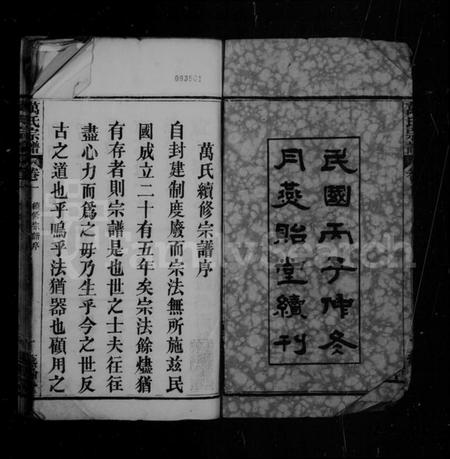 民國丙子仲冬
月燕貽堂續刊
萬氏宗譜
093501
萬氏續修宗譜序
自封建制度廢而宗法無所施茲民
國成立二十有五年矣宗法餘燼猶
有存者則宗譜是也世之士夫往往
盡心力而爲之毋乃生乎今之世反
古之道也乎嗚乎法猶器也顧用之
萬氏宗譜
卷一
續修宗譜序